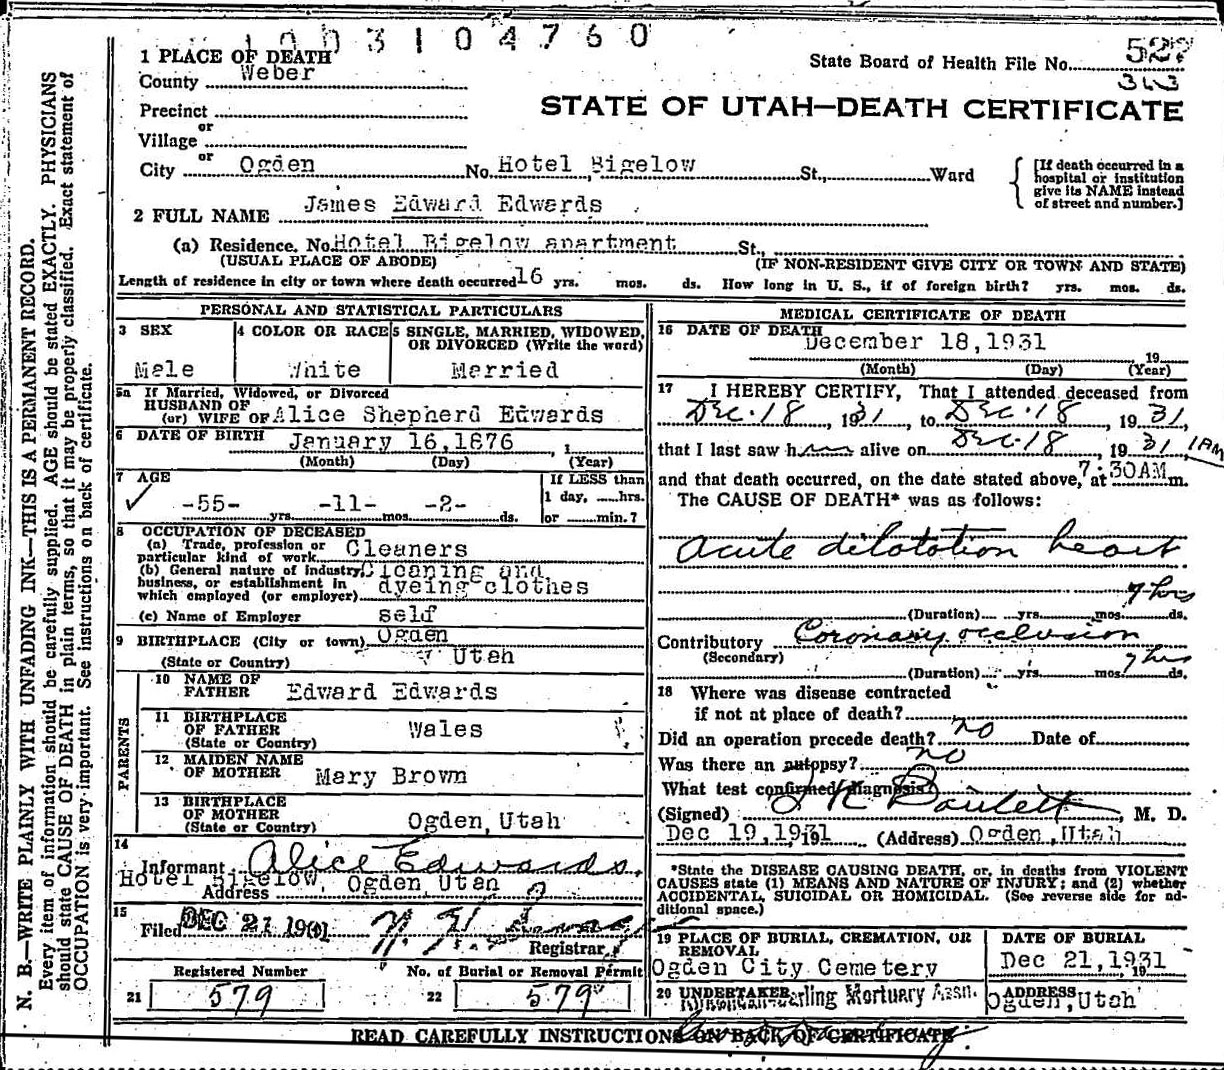 1003104760
1 PLACE OF DEATH
County Weber
State Board of Health File No. 527
313
Precinct
or
Village
or
STATE OF UTAH—DEATH CERTIFICATE
City Ogden No. Hotel Bigelow St., Ward
[If death occurred in a hospital or institution give its NAME instead of street and number.]
2 FULL NAME James Edward Edwards
(a) Residence. No. Hotel Bigelow apartment St.,
(USUAL PLACE OF ABODE) (IF NON-RESIDENT GIVE CITY OR TOWN AND STATE)
Length of residence in city or town where death occurred 16 yrs. mos. ds. How long in U. S., if of foreign birth? yrs. mos. ds.
PERSONAL AND STATISTICAL PARTICULARS
3 SEX
Male
4 COLOR OR RACE
White
5 SINGLE, MARRIED, WIDOWED,
OR DIVORCED (Write the word)
Married
5a If Married, Widowed, or Divorced
HUSBAND OF
(or) WIFE OF Alice Shepherd Edwards
6 DATE OF BIRTH January 16,1876 , 1
(Month) (Day) (Year)
7 AGE
-55- yrs. -11- mos. -2- ds.
If LESS than
1 day, ......hrs.
or ......min.?
8 OCCUPATION OF DECEASED
(a) Trade, profession or
particular kind of work Cleaners
(b) General nature of Industry, Cleaning and
business, or establishment in dyeing clothes
which employed (or employer)
(c) Name of Employer self
9 BIRTHPLACE (City or town) Ogden
(State or Country) Utah
PARENTS
10 NAME OF
FATHER Edward Edwards
11 BIRTHPLACE
OF FATHER Wales
(State or Country)
12 MAIDEN NAME
OF MOTHER Mary Brown
13 BIRTHPLACE
OF MOTHER
(State or Country) Ogden, Utah
14
Informant Alice Edwards.
Hotel Bigelow, Ogden Utah
Address
15
Filed DEC 21 19
Registrar
Registered Number No. of Burial or Removal Permit
21 579 22 579
MEDICAL CERTIFICATE OF DEATH
16 DATE OF DEATH
December 18,1931 19
(Month) (Day) (Year)
17 I HEREBY CERTIFY, That I attended deceased from
Dec. 18, 1931 to Dec. 18, 1931,
that I last saw h alive on Dec. 18, 1931, 1AM
and that death occurred, on the date stated above, at 7:30AM m.
The CAUSE OF DEATH* was as follows:
acute dilatation heart
7 hrs
(Duration) yrs. mos. ds.
Contributory Coronary occlusion
(Secondary)
7 hrs
(Duration) yrs. mos. ds.
18 Where was disease contracted
if not at place of death?
Did an operation precede death? no Date of
Was there an autopsy? no
What test confirmed diagnosis?
(Signed) , M. D.
Dec 19,1931 19 (Address) Ogden, Utah
*State the DISEASE CAUSING DEATH, or, in deaths from VIOLENT
CAUSES state (1) MEANS AND NATURE OF INJURY; and (2) whether
ACCIDENTAL, SUICIDAL OR HOMICIDAL. (See reverse side for ad-
ditional space.)
19 PLACE OF BURIAL, CREMATION, OR
REMOVAL
Ogden City Cemetery
DATE OF BURIAL
Dec 21,1931 19
20 UNDERTAKER Mortuary Assn.
ADDRESS
Ogden, Utah
READ CAREFULLY INSTRUCTIONS ON BACK OF CERTIFICATE
N. B.—WRITE PLAINLY WITH UNFADING INK—THIS IS A PERMANENT RECORD.
Every item of information should be carefully supplied. AGE should be stated EXACTLY. PHYSICIANS
should state CAUSE OF DEATH in plain terms, so that it may be properly classified. Exact statement of
OCCUPATION is very important. See instructions on back of certificate.